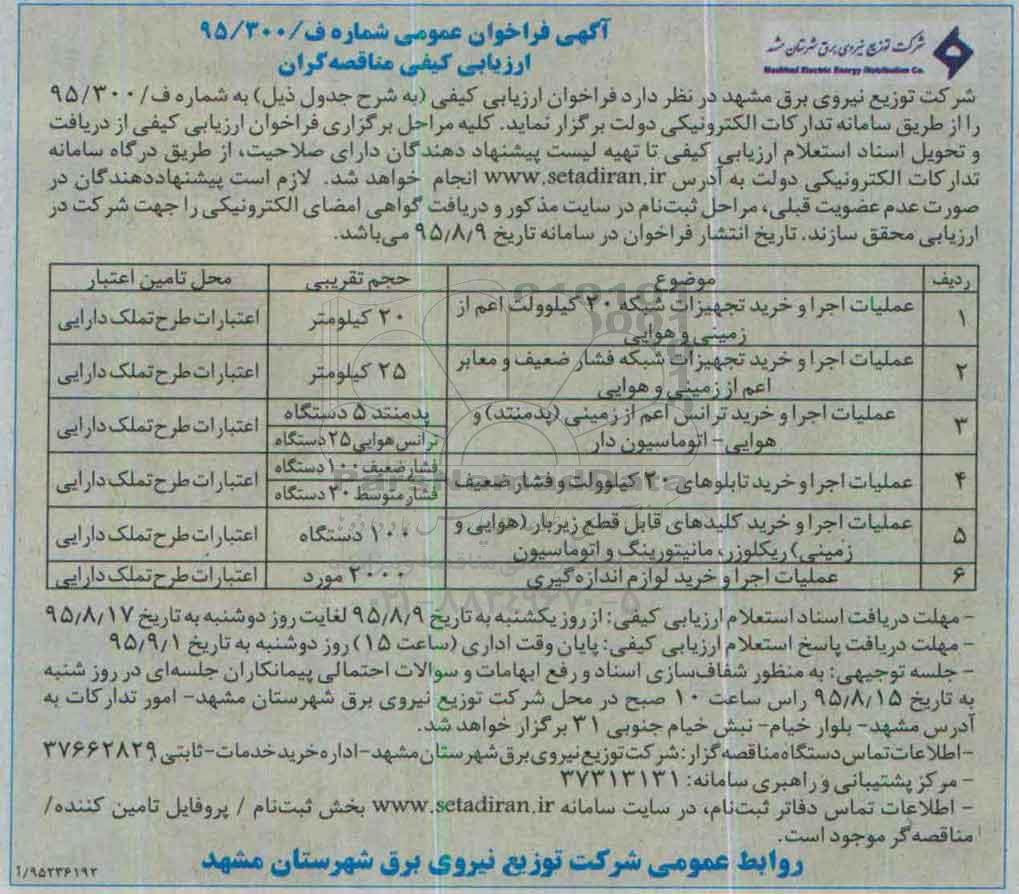 شرکت توزیع نیروی برق شهرستان مشهد
Mashhad Electric Energy Distribution Co.
آگهی فراخوان عمومی شماره ف/۹۵/۳۰۰
ارزیابی کیفی مناقصه‌گران
شرکت توزیع نیروی برق مشهد در نظر دارد فراخوان ارزیابی کیفی (به شرح جدول ذیل) به شماره ف/۹۵/۳۰۰
را از طریق سامانه تدارکات الکترونیکی دولت برگزار نماید. کلیه مراحل برگزاری فراخوان ارزیابی کیفی از دریافت
و تحویل اسناد استعلام ارزیابی کیفی تا تهیه لیست پیشنهاد دهندگان دارای صلاحیت، از طریق درگاه سامانه
تدارکات الکترونیکی دولت به آدرس www.setadiran.ir انجام خواهد شد. لازم است پیشنهاددهندگان در
صورت عدم عضویت قبلی، مراحل ثبت‌نام در سایت مذکور و دریافت گواهی امضای الکترونیکی را جهت شرکت در
ارزیابی محقق سازند. تاریخ انتشار فراخوان در سامانه تاریخ ۹۵/۸/۹ می‌باشد.
ردیف موضوع حجم تقریبی محل تامین اعتبار
۱ عملیات اجرا و خرید تجهیزات شبکه ۲۰ کیلوولت اعم از
زمینی و هوایی ۲۰ کیلومتر اعتبارات طرح تملک دارایی
۲ عملیات اجرا و خرید تجهیزات شبکه فشار ضعیف و معابر
اعم از زمینی و هوایی ۲۵ کیلومتر اعتبارات طرح تملک دارایی
۳ عملیات اجرا و خرید ترانس اعم از زمینی (پدمنتد) و
هوایی- اتوماسیون دار پدمنتد ۵ دستگاه
ترانس هوایی ۲۵ دستگاه اعتبارات طرح تملک دارایی
۴ عملیات اجرا و خرید تابلوهای ۲۰ کیلوولت و فشار ضعیف فشار ضعیف ۱۰۰ دستگاه
فشار متوسط ۳۰ دستگاه اعتبارات طرح تملک دارایی
۵ عملیات اجرا و خرید کلیدهای قابل قطع زیربار (هوایی و
زمینی) ریکلوزر، مانیتورینگ و اتوماسیون ۱۰۰ دستگاه اعتبارات طرح تملک دارایی
۶ عملیات اجرا و خرید لوازم اندازه‌گیری ۲۰۰۰ مورد اعتبارات طرح تملک دارایی
ParsNamadData
- مهلت دریافت اسناد استعلام ارزیابی کیفی: از روز یکشنبه به تاریخ ۹۵/۸/۹ لغایت روز دوشنبه به تاریخ ۹۵/۸/۱۷
- مهلت دریافت پاسخ استعلام ارزیابی کیفی: پایان وقت اداری (ساعت ۱۵) روز دوشنبه به تاریخ ۹۵/۹/۱
- جلسه توجیهی: به منظور شفاف‌سازی اسناد و رفع ابهامات و سوالات احتمالی پیمانکاران جلسه‌ای در روز شنبه
به تاریخ ۹۵/۸/۱۵ راس ساعت ۱۰ صبح در محل شرکت توزیع نیروی برق شهرستان مشهد- امور تدارکات به
آدرس مشهد- بلوار خیام- نبش خیام جنوبی ۳۱ برگزار خواهد شد.
-اطلاعات تماس دستگاه مناقصه گزار: شرکت توزیع نیروی برق شهرستان مشهد-اداره خرید خدمات-ثابتی ۳۷۶۶۲۸۲۹
- مرکز پشتیبانی و راهبری سامانه: ۳۷۳۱۳۱۳۱
- اطلاعات تماس دفاتر ثبت‌نام، در سایت سامانه www.setadiran.ir بخش ثبت‌نام / پروفایل تامین کننده/
مناقصه‌گر موجود است.
روابط عمومی شرکت توزیع نیروی برق شهرستان مشهد
۹۵۲۳۶۱۹۲/آ